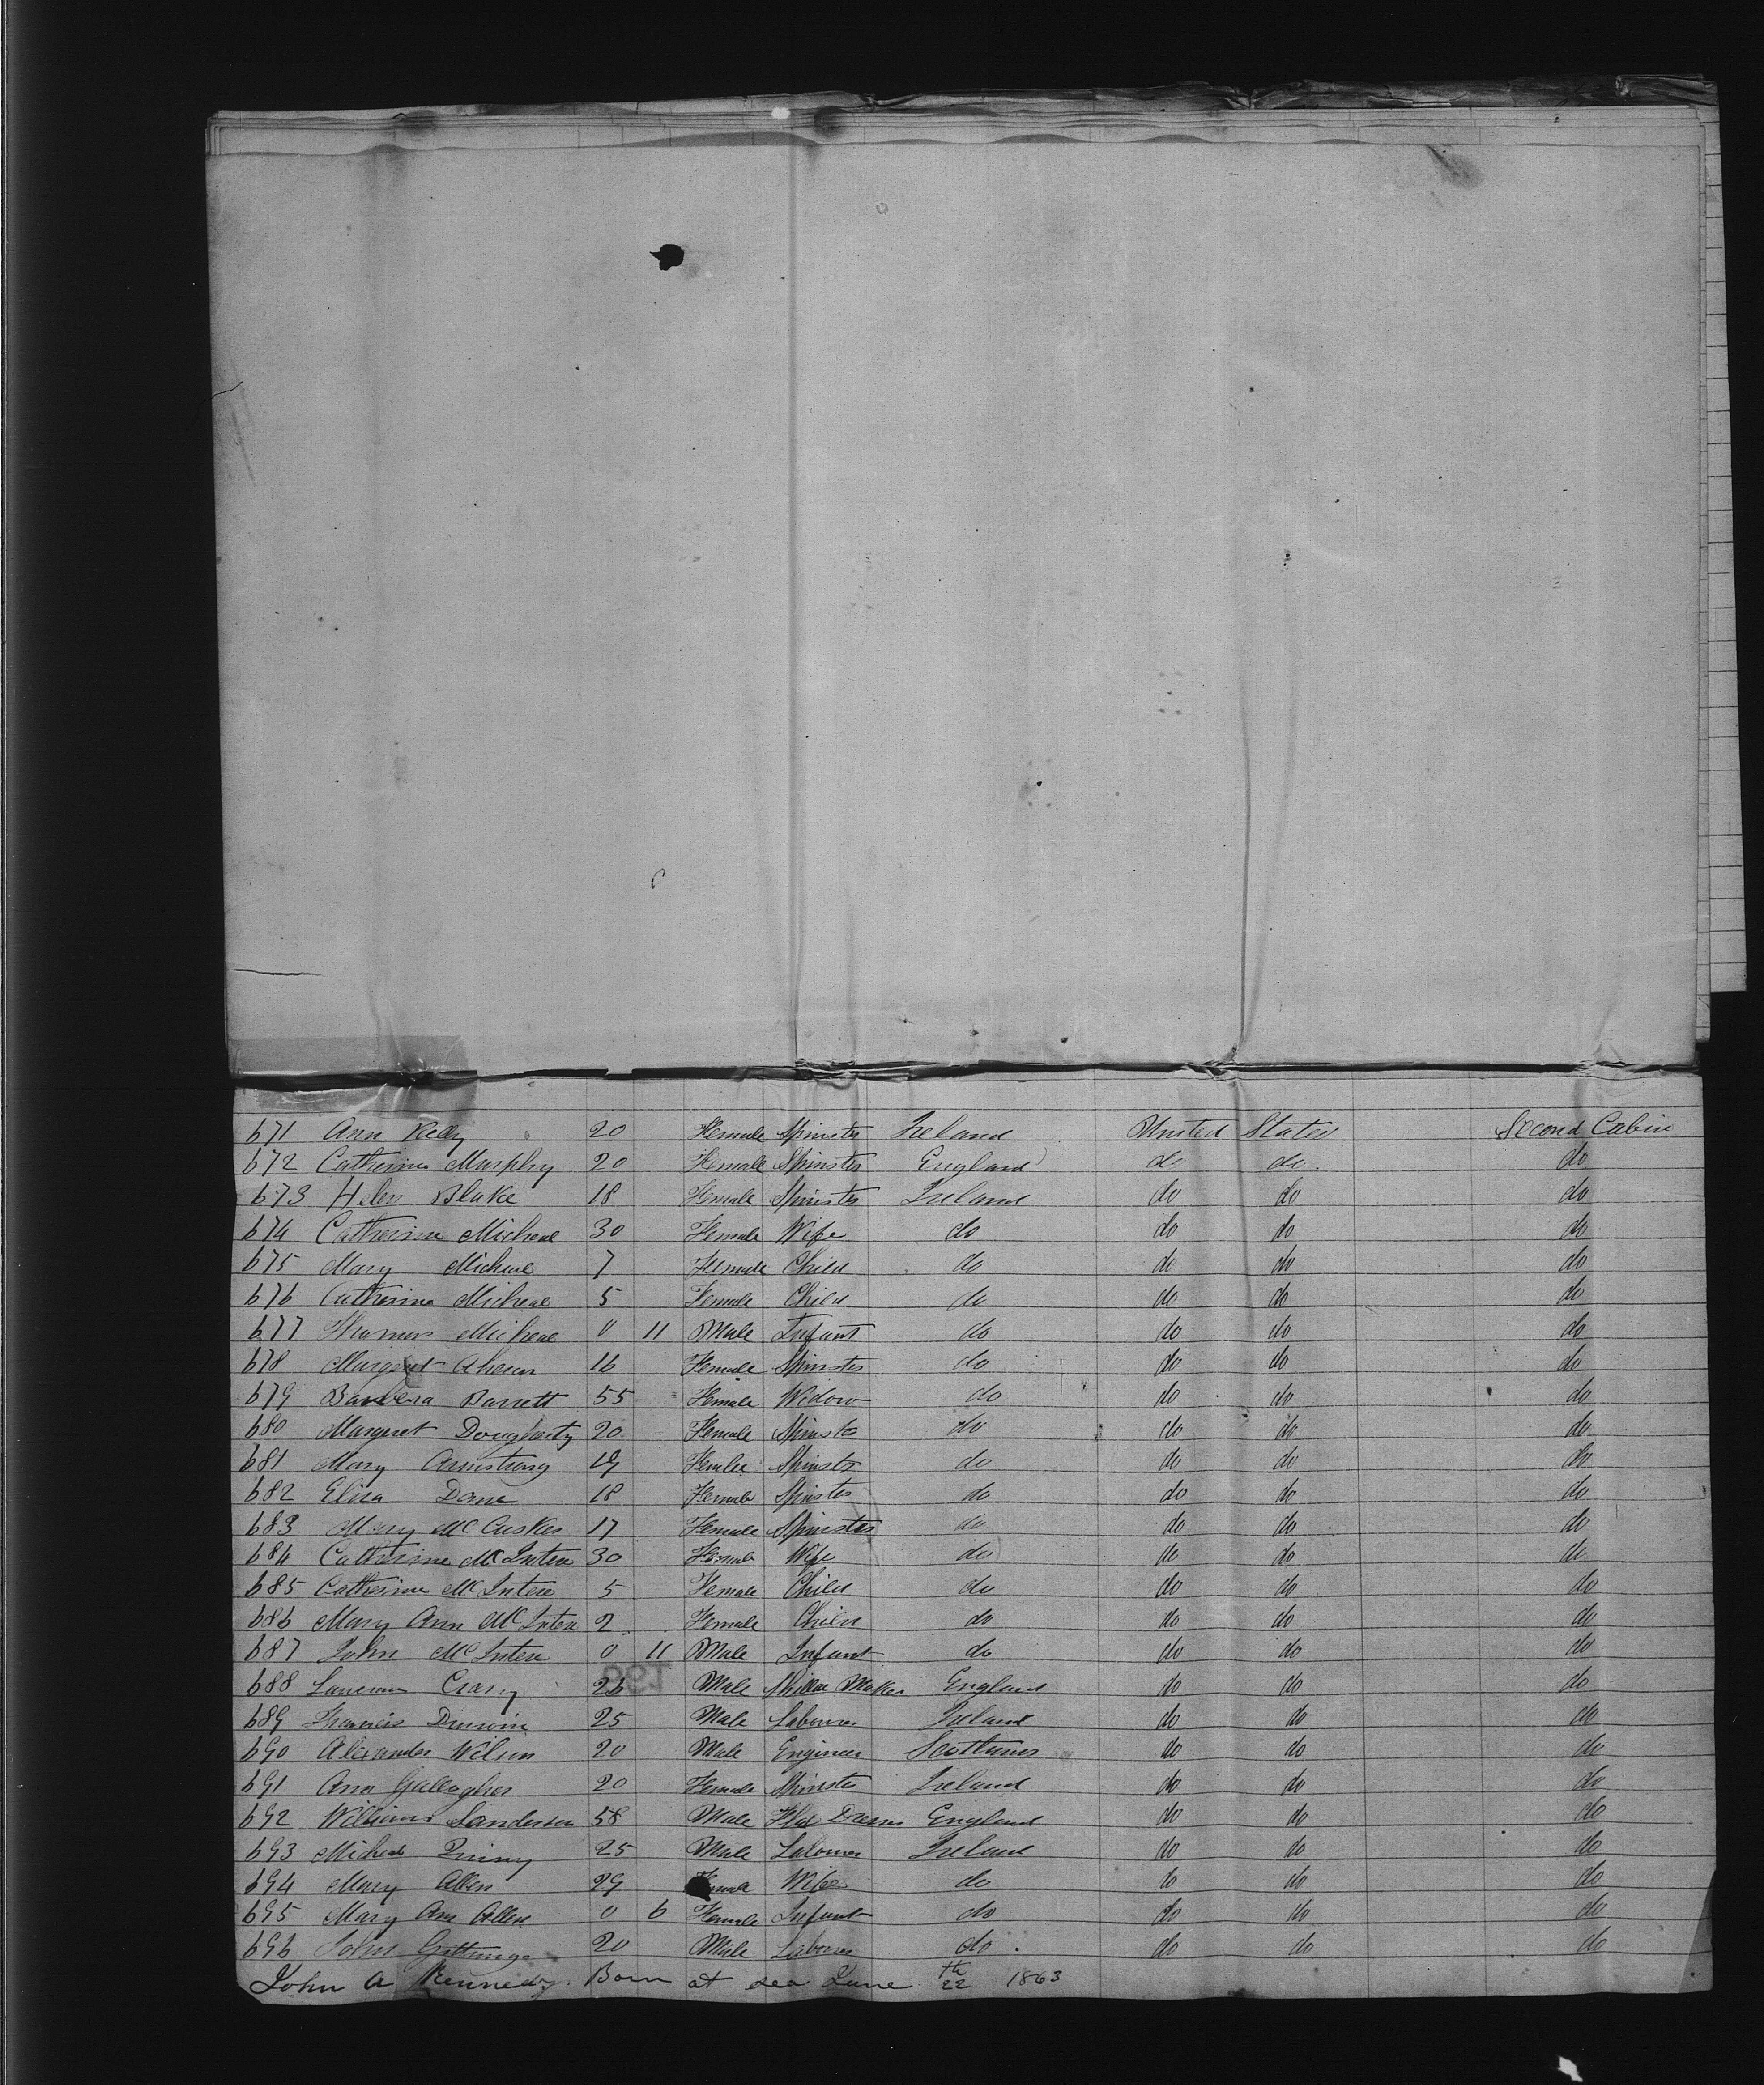 671 Ann Kelly 20 Female Spinster Ireland United States Second Cabin
672 Catherine Murphy 20 Female Spinster England do do. do
673 Helen Blake 18 Female Spinster Ireland do do do
674 Catherine Micheal 30 Female Wife do do do do
675 Mary Micheal 7 Female Child do do do do
676 Catherine Micheal 5 Female Child do do do do
677 Thomas Micheal 0 11 Male Infant do do do do
678 Margret Ahearn 16 Female Spinster do do do do
679 Barbera Barrett 55 Female Widow do do do do
680 Margret Dougharty 20 Female Spinster do do do do
681 Mary Armstrong 19 Femlee Spinster do do do do
682 Eliza Dane 18 Female Spinster do do do do
683 Mary McCusker 17 Female Spinster do do do do
684 Catherine McIntere 30 Female Wife do do do do
685 Catherine McIntere 5 Female Child do do do do
686 Mary Ann McIntere 2 Female Child do do do do
687 John McIntere 0 11 Male Infant do do do do
688 26 Male Maker England do do do
689 Francis 25 Male Labourer Ireland do do do
690 Alexander Wilson 20 Male Engineer do do do
691 Ann Gallagher 20 Female Spinster Ireland do do do
692 William Sanderson 58 Male Flax Dresser England do do do
693 Michael 25 Male Labourer Ireland do do do
694 Mary Allen 29 Female Wife do do do do
695 Mary Ann Allen 0 6 Female Infant do do do do
696 John 20 Male Labourer do. do do do
John A Kennedy. Born at sea June 22th 1863